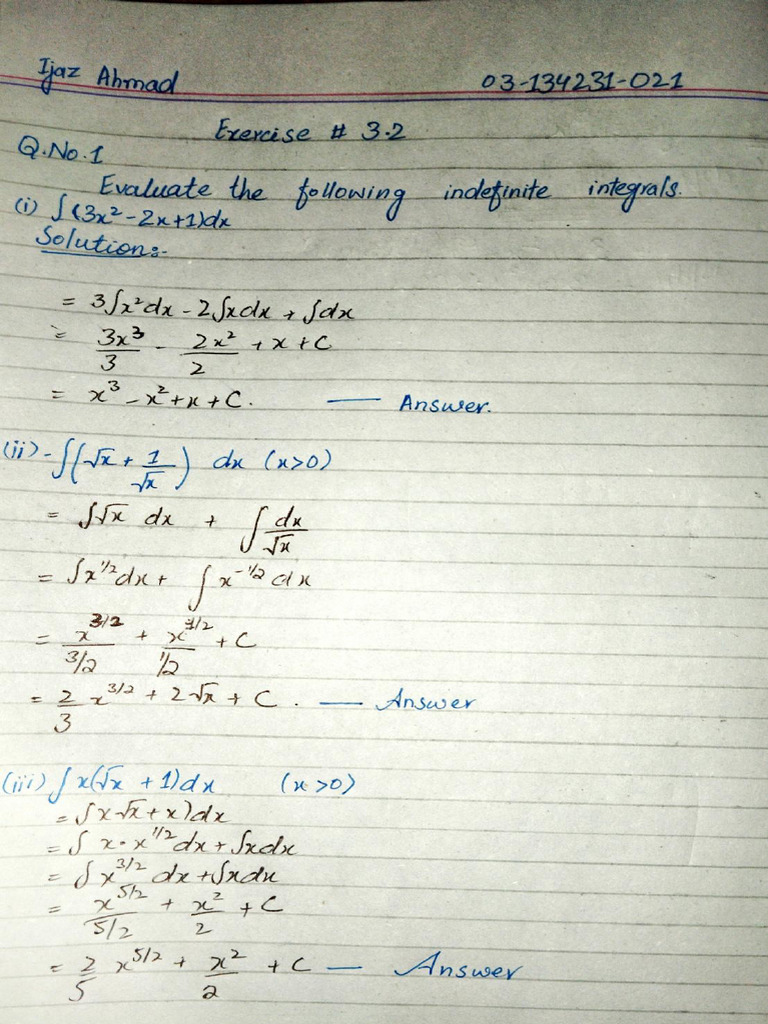 Ijaz Ahmad 03-134231-021
Exercise # 3.2
Q.No.1
Evaluate the following indefinite integrals.
(i) ∫(3x²-2x+1)dx
Solution:-
= 3∫x²dx - 2∫xdx + ∫dx
= 3x³/3 - 2x²/2 + x + C
= x³ - x² + x + C. — Answer.
(ii)- ∫(√x + 1/√x) dx (x>0)
= ∫√x dx + ∫dx/√x
= ∫x^1/2 dx + ∫x^-1/2 dx
= x^3/2 / 3/2 + x^1/2 / 1/2 + C
= 2/3 x^3/2 + 2√x + C. — Answer
(iii) ∫x(√x + 1)dx (x>0)
= ∫x√x + x)dx
= ∫x·x^1/2 dx + ∫xdx
= ∫x^3/2 dx + ∫xdx
= x^5/2 / 5/2 + x²/2 + C
= 2/5 x^5/2 + x²/2 + C — Answer